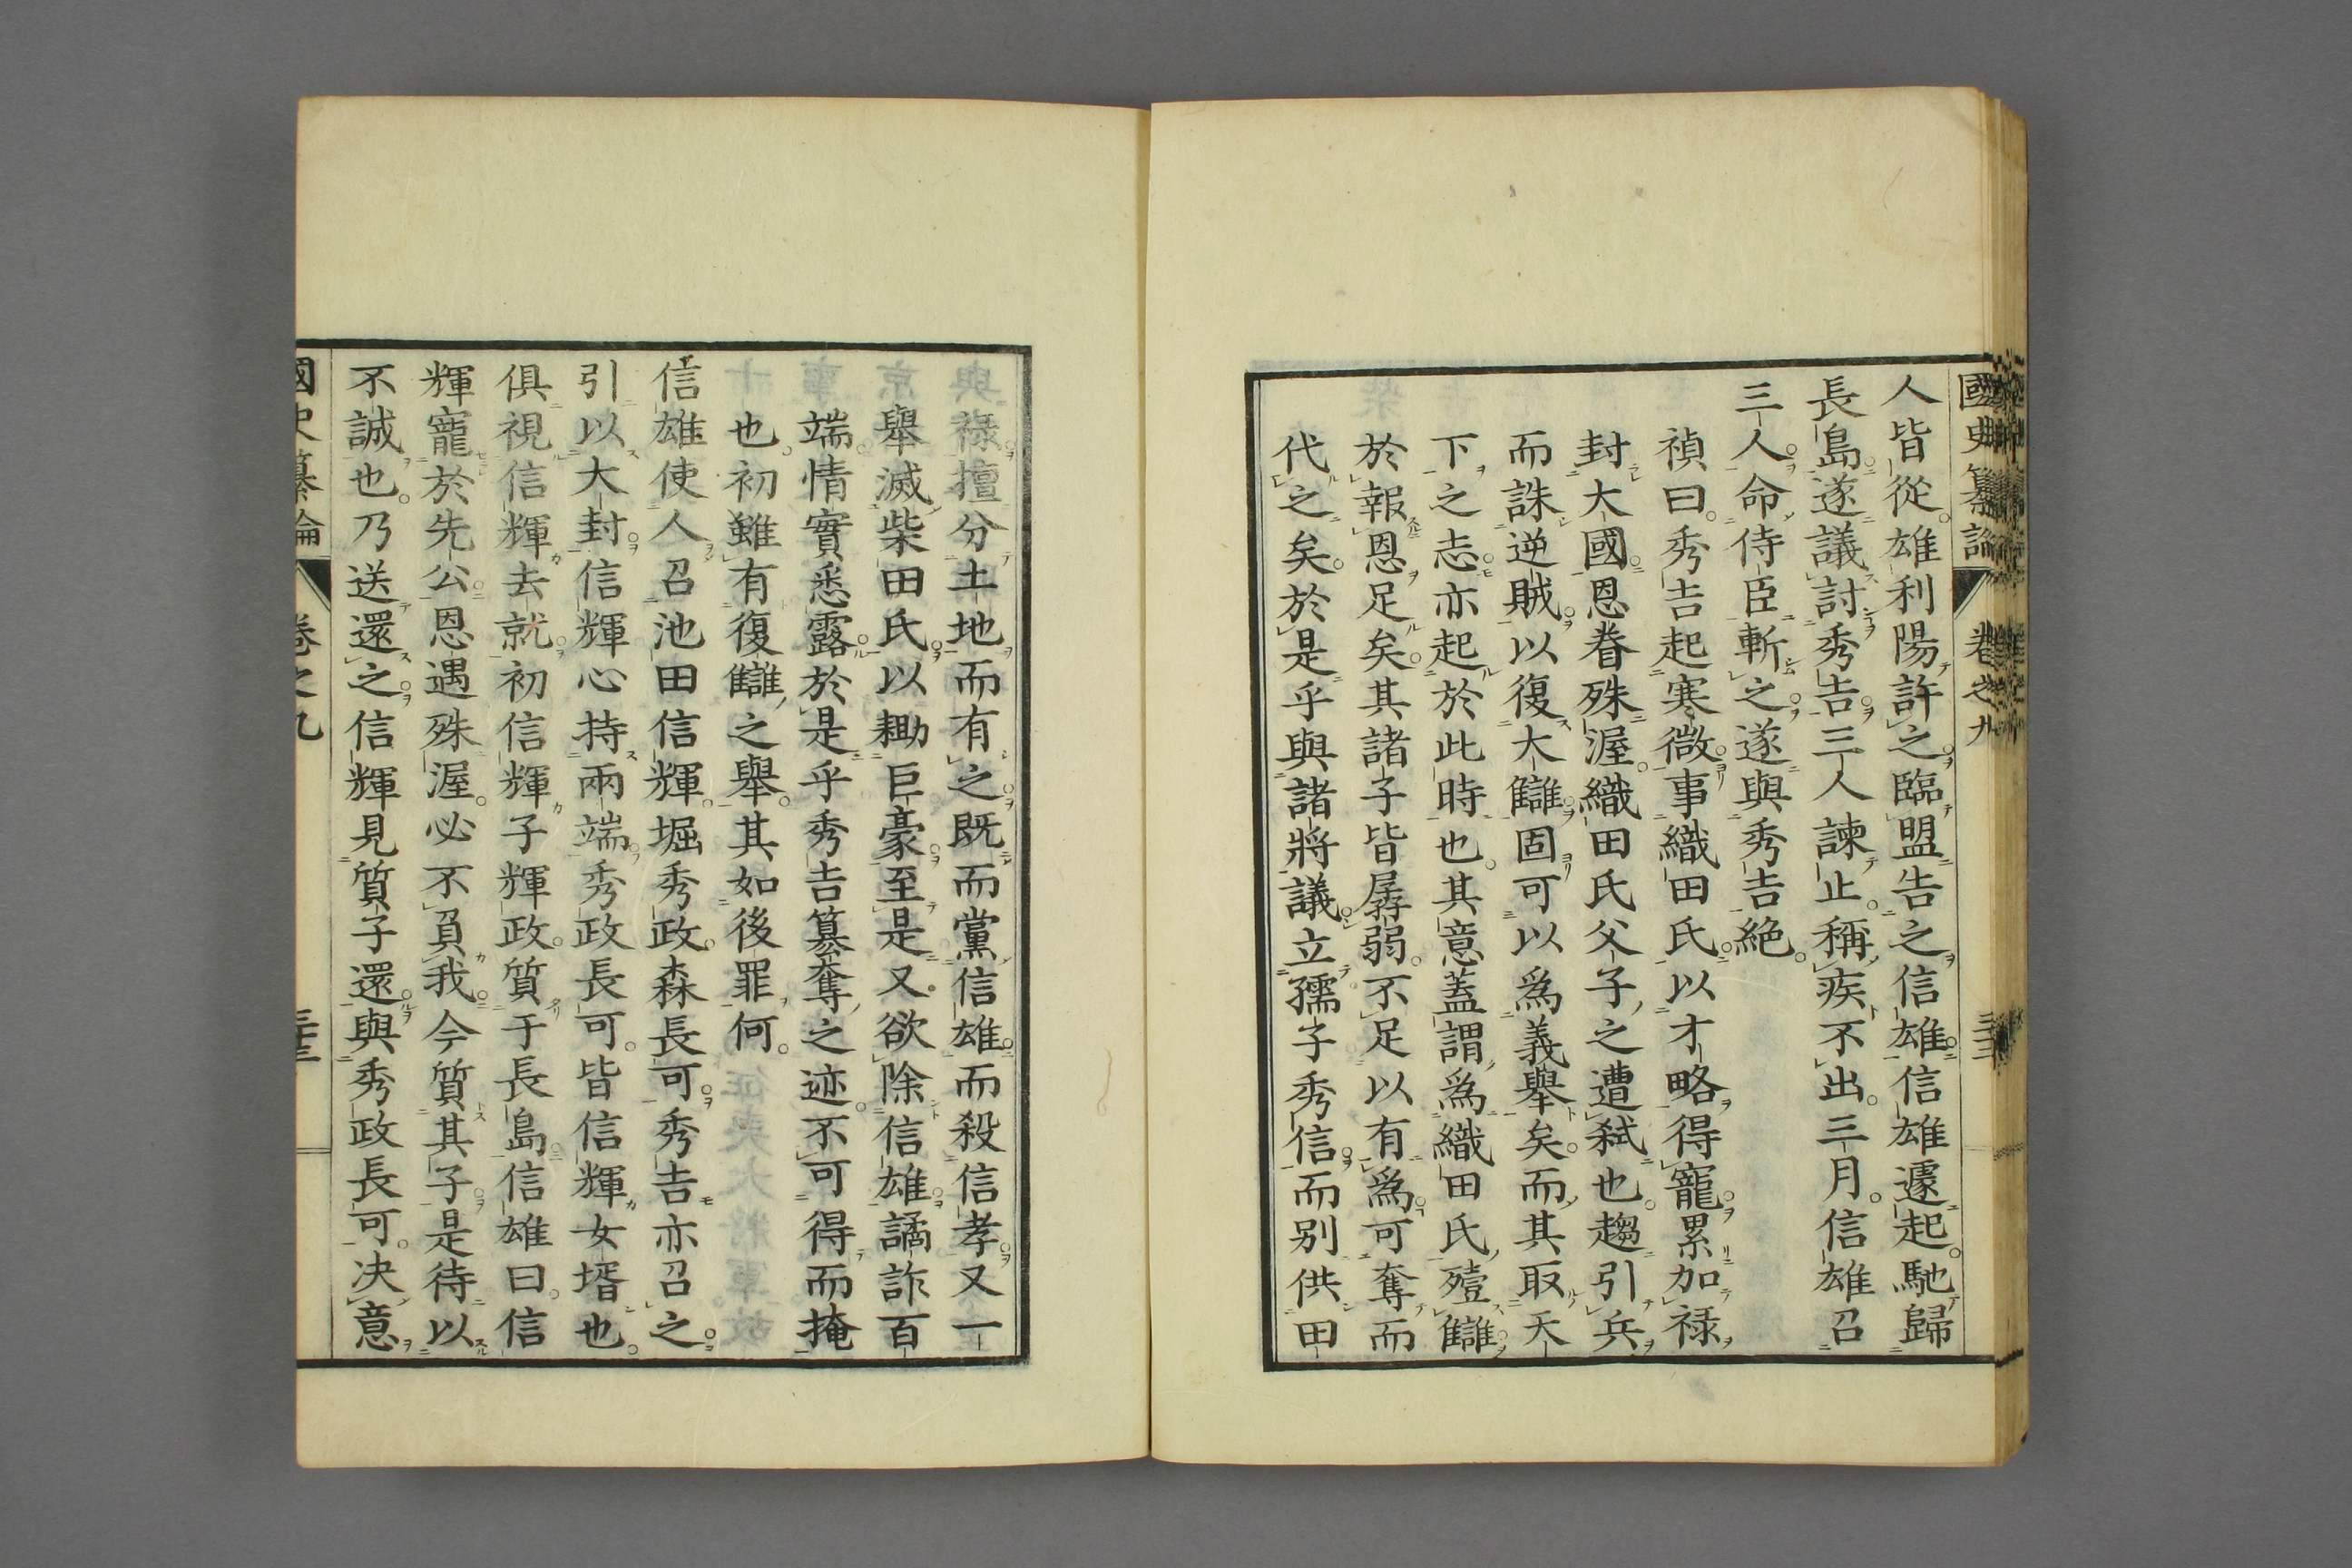 國史纂論 卷之九
人皆從。雄利陽許之。臨盟告之信雄。信雄遽起。馳歸
長島。遂議討秀吉。三人諫止。稱疾不出。三月。信雄召
三人。命侍臣斬之。遂與秀吉絶。
禎曰。秀吉起寒微。事織田氏。以才略得寵。累加禄
封大國。恩眷殊渥。織田氏父子之遭弑也。趨引兵
而誅逆賊。以復大讎。固可以爲義舉矣。而其取天
下之志。亦起於此時也。其意蓋謂爲織田氏殪讎。
於報恩足矣。其諸子皆孱弱。不足以有爲。可奪而
代之矣。於是乎與諸將議。立孺子秀信。而别供田
禄。擅分土地。而有之。既而黨信雄。而殺信孝。又一
舉滅柴田氏。以耡巨豪。至是又欲除信雄。譎詐百
端。情實悉露。於是乎秀吉簒奪之迹。不可得而掩
也。初雖有復讎之舉。其如後罪何。
信雄使人召池田信輝。堀秀政。森長可。秀吉亦召之。
引以大封。信輝心持兩端。秀政長可。皆信輝女壻也。
俱視信輝去就。初信輝子輝政。質于長島。信雄曰。信
輝寵於先公。恩遇殊渥。必不負我。今質其子。是待以
不誠也。乃送還之。信輝見質子還。與秀政長可。决意
國史纂論 卷之九 三十三